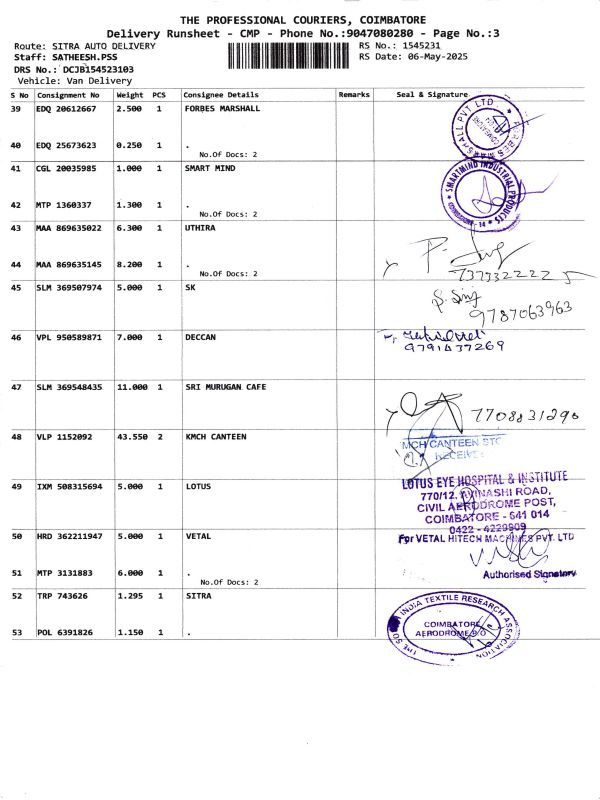 THE PROFESSIONAL COURIERS, COIMBATORE
Delivery Runsheet - CMP - Phone No.:9047080280 - Page No.:3
Route: SITRA AUTO DELIVERY
Staff: SATHEESH.PSS
DRS No.: DCJB154523103
Vehicle: Van Delivery
RS No.: 1545231
RS Date: 06-May-2025
S No Consignment No Weight PCS Consignee Details Remarks Seal & Signature
39 EDQ 20612667 2.500 1 FORBES MARSHALL
40 EDQ 25673623 0.250 1 .
No.Of Docs: 2
41 CGL 20035985 1.000 1 SMART MIND
SMARTMIND INDUSTRIAL PRODUCTS
COIMBATORE - 14
42 MTP 1360337 1.300 1 .
No.Of Docs: 2
43 MAA 869635022 6.300 1 UTHIRA
44 MAA 869635145 8.200 1 .
No.Of Docs: 2
45 SLM 369507974 5.000 1 SK
9787063963
46 VPL 950589871 7.000 1 DECCAN
9791437269
47 SLM 369548435 11.000 1 SRI MURUGAN CAFE
7708831290
48 VLP 1152092 43.550 2 KMCH CANTEEN
MCH CANTEEN STO
RECEIVE
49 IXM 508315694 5.000 1 LOTUS
LOTUS EYE HOSPITAL & INSTITUTE
770/12, AVINASHI ROAD,
CIVIL AERODROME POST,
COIMBATORE - 641 014
0422 - 4229909
50 HRD 362211947 5.000 1 VETAL
For VETAL HITECH MACHINES PVT. LTD
51 MTP 3131883 6.000 1 .
No.Of Docs: 2
Authorised Signatory
52 TRP 743626 1.295 1 SITRA
THE SOUTH INDIA TEXTILE RESEARCH ASSOCIATION
COIMBATORE
AERODROME P.O
53 POL 6391826 1.150 1 .